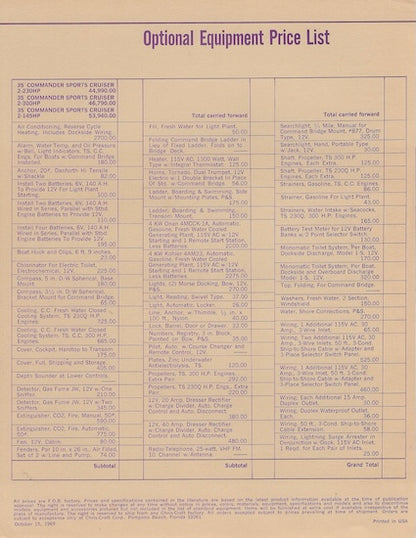 Optional Equipment Price List
35' COMMANDER SPORTS CRUISER
2-230HP 44,990.00
35' COMMANDER SPORTS CRUISER
2-300HP 46,790.00
35' COMMANDER SPORTS CRUISER
2-145HP 53,940.00
Air Conditioning, Reverse Cycle
Heating. Includes Dockside Wiring
2700.00
Alarm, Water Temp. and Oil Pressure
w/Bell, Light Indicators, TS, C.C.
Engs. For Boats w/Command Bridge
Installed. 180.00
Anchor, 20#, Danforth Hi-Tensile
w/Shackle 82.00
Install Two Batteries, 6V, 140 A.H.
To Provide 12V For Light Plant
Starting. 100.00
Install Two Batteries, 6V, 140 A.H.
Wired in Series, Parallel with Std
Engine Batteries To Provide 12V.
110.00
Install Four Batteries, 6V, 140 A.H.
Wired in Series, Parallel with Std
Engine Batteries To Provide 12V.
195.00
Boat Hook and Clips, 6 ft. 9 inches
23.00
Chlorinator For Electric Toilet,
Electrochemical, 12V. 225.00
Compass, 5 in. D-W Spherical, Base
Mount. 180.00
Compass, 3½ in. D-W Spherical,
Bracket Mount for Command Bridge
65.00
Cooling, C.C. Fresh Water Closed
Cooling System, TS 230Q H.P.
Engines.
Cooling, C.C. Fresh Water Closed
Cooling System, TS C.C. 300 H.P.
Engines. 665.00
Cover, Cockpit, Handtop to Transom
175.00
Cover, Full, Shipping and Storage.
405.00
Depth Sounder at Lower Controls.
Detector, Gas Fume JW, 12V w/One
Sniffer 210.00
Detector, Gas Fume JW, 12V w/Two
Sniffers 345.00
Extinguisher, CO2, Fire, Manual, 50#,
590.00
Extinguisher, CO2, Fire, Automatic,
50#. 775.00
Fan, 12V, Cabin. 80.00
Fenders, Pair 10 in x 26 in., Air Filled,
Set of 2 w/Line and Pump. 74.00
Subtotal
Total carried forward
Fill, Fresh Water for Light Plant.
50.00
Folding Command Bridge Ladder in
Lieu of Fixed Ladder. Folds on to
Bridge Deck.
Heater, 115V AC, 1300 Watt, Wall
Type w/Integral Thermostat. 125.00
Horns, Tornado, Dual Trumpet, 12V
Electric w/1 Double Bracket In Place
Of Std. w/Command Bridge. 56.00
Ladder, Boarding & Swimming, Side
Mount w/Mounting Plates, P&S.
175.00
Ladder, Boarding & Swimming,
Transom Mount. 150.00
4 KW Onan 4MCCK-1A, Automatic,
Gasoline, Fresh Water Cooled
Generating Plant, 115V AC w/12V
Starting and 1 Remote Start Station,
Less Batteries. 2200.00
4 KW Kohler 4AM23, Automatic,
Gasoline, Fresh Water Cooled
Generating Plant, 115V AC w/12V
Starting and 1 Remote Start Station,
Less Batteries 2275.00
Lights, (2) Morse Docking, Bow, 12V,
P&S. 270.00
Light, Reading, Swivel Type. 37.00
Light, Automatic, Locker. 26.00
Line, Anchor, w/Thimble, ½ in. x
150 ft., Nylon. 40.00
Lock, Barrel, Door or Drawer. 32.00
Numbers, Registry, 3 in. Block,
Painted on Bow, P&S. 35.00
Pilot, Auto, w/Course Changer and
Remote Control, 12V.
Plates, Zinc Underwater
Antielectrolysis, TS. 120.00
Propellers, TS 300 H.P. Engines,
Extra Pair. 292.00
Propellers, TS 230Q H.P. Engs., Extra
Pair 220.00
12V, 20 Amp. Dresser Rectifier
w/Charge Divider, Auto. Charge
Control and Auto. Disconnect
380.00
12V, 60 Amp. Dresser Rectifier
w/Charge Divider, Auto. Charge
Control and Auto. Disconnect
480.00
Radio Telephone, 25-watt, VHF FM,
10 Channel w/Antenna
Subtotal
Total carried forward
Searchlight, ½ Mile, Manual for
Command Bridge Mount, #877, Drum
Type, 12V 325.00
Searchlight, Hand, Portable Type
w/Jack, 12V. 30.00
Shaft, Propeller, TS 300 H.P.
Engines, Each Extra. 125.00
Shaft, Propeller, TS 230Q H.P.
Engines, Each Extra. 125.00
Strainers, Gasoline, TS, C.C. Engines.
86.00
Strainer, Gasoline For Light Plant.
43.00
Strainers, Water Intake w/Seacocks,
TS 230Q, 300 H.P. Engines.
165.00
Battery Test Meter for 12V Battery
Banks w/2 Point Selector Switch.
130.00
Monomatic Toilet System, Per Boat,
Dockside Discharge, Model I-S, 12V.
Monomatic Toilet System, Per Boat,
Dockside and Overboard Discharge
Model I-S, 12V 320.00
Top, Folding, For Command Bridge.
Washers, Fresh Water, 2 Section
Windshield. 160.00
Water, Shore Connections, P&S.
270.00
Wiring, 1 Additional 115V AC, 30
Amp., 3-Wire Inlet. 65.00
Wiring, Two Additional 115V AC, 30
Amp., 3-Wire Inlets, 50 ft., 3-Cond.
Ship-to-Shore Cable w/Adapter and
3-Place Selector Switch Panel.
525.00
Wiring, 1 Additional 115V AC, 30
Amp., 3-Wire Inlet, 50 ft. 3-Cond.
Ship-to-Shore Cable w/Adapter and
3-Place Selector Switch Panel.
460.00
Wiring, Each Additional 15 Amp.
Duplex Outlet. 30.00
Wiring, Duplex Waterproof Outlet,
Each. 36.00
Wiring, 50 ft., 3-Cond. Ship-to-Shore
Cable Extension. 58.00
Wiring, Lightning Surge Arrester in
Conjunction w/Gock. 115V AC Inlet
1 Reqd. for Each Pair of Inlets.
25.00
Grand Total
All prices are F.O.B. factory. Prices and specifications contained in the literature are based on the latest product information available at the time of publication
October 15, 1969
Printed in USA